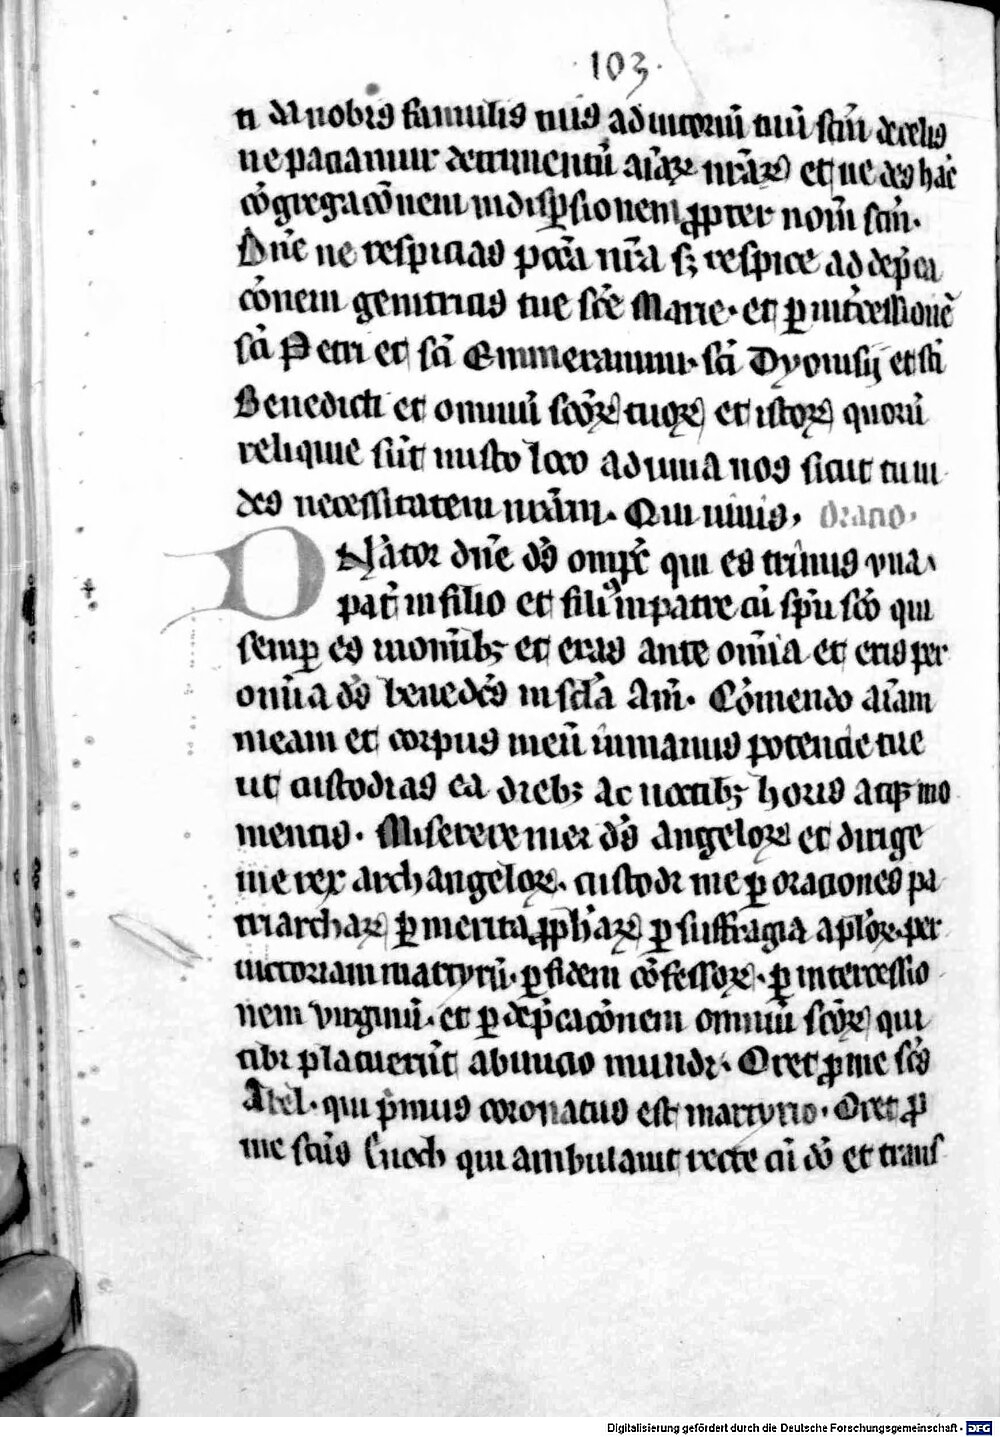 ·103·
ti da nobis famulis tuis adiutoriū tuū scm̄ de celis
ne patiamur detrimentū aīaꝝ nr̄aꝝ et ne des hāc
cōgregacōnem in dispsionem ꝓpter nom̄ scm̄.
Dn̄e ne respicias pcc̄a nr̄a sꝫ respice ad dep̄ca
cōnem genitricis tue scē Marie. et ꝑ int̄cessionē
scī Petri et scī Emmerammi. scī Dyonisij et scī
Benedicti et omniū scōꝝ tuoꝝ et istoꝝ quorū
reliquie sūt in isto loco adiuua nos sicut tu vi
des necessitatem nrām. Qui viuis, Oracio,
Onātor dn̄e dṡ omp̄c qui es trinus vna
pat̄ in filio et fili9 in patre cū sp̄u scō qui
semꝑ es in om̄ibꝫ et eras ante om̄ia et eris per
om̄ia dṡ benedc̄s in scl̄a Am̄. Cōmendo aīam
meam et corpus meū in manus potencie tue
ut custodias ea diebꝫ ac noctibꝫ horis atqꝫ mo
mentis. Miserere mei dṡ angeloꝝ et dirige
me rex archangeloꝝ. custodi me ꝑ oraciones pa
triarchaꝝ ꝑ merita ꝓph̄aꝝ ꝑ suffragia apl̄oꝝ. per
victoriam martyrū. ꝑ fidem cōfessoꝝ. ꝑ intercessio
nem virginū. et ꝑ dep̄cacōnem omniū scōꝝ qui
tibi placuerūt ab inicio mundi. Oret ꝓ me scs̄
Abel. qui p̄mus coronatus est martyrio. Oret ꝓ
me sctūs Enoch qui ambulauit recte cū dō et trans
Digitalisierung gefördert durch die Deutsche Forschungsgemeinschaft - DFG